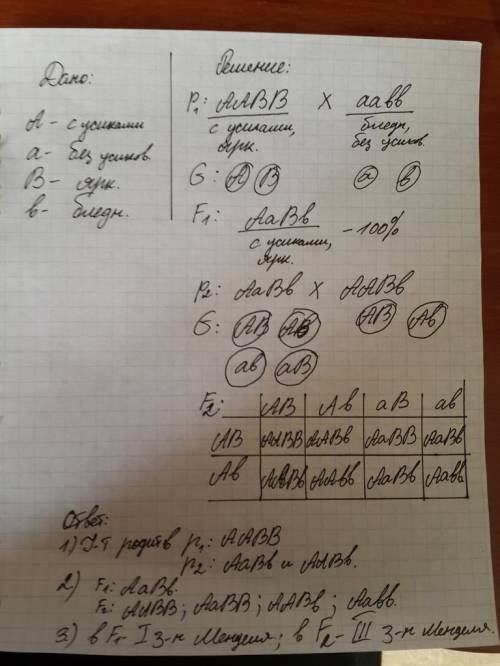 Дано:
А - с усиками
а - без усиков.
В - ярк.
в - бледн.
Решение:
P₁: ААВВ х аавв
с усиками, ярк.
бледн, без усиков.
G: А В а в
F₁: АаВв - 100%
с усиками, ярк.
P₂: АаВв х ААВв
G: АВ Ав АВ Ав
ав аВ
F₂: АВ Ав аВ ав
АВ ААВВ ААВв АаВВ АаВв
Ав ААВв ААвв АаВв Аавв
Ответ:
1) Г-т родит. в P₁: ААВВ
P₂: АаВв и ААВв.
2) F₁: АаВв.
F₂: ААВВ; АаВВ; ААВв; Аавв.
3) в F₁ I з-н Менделя; в F₂ - III з-н Менделя.